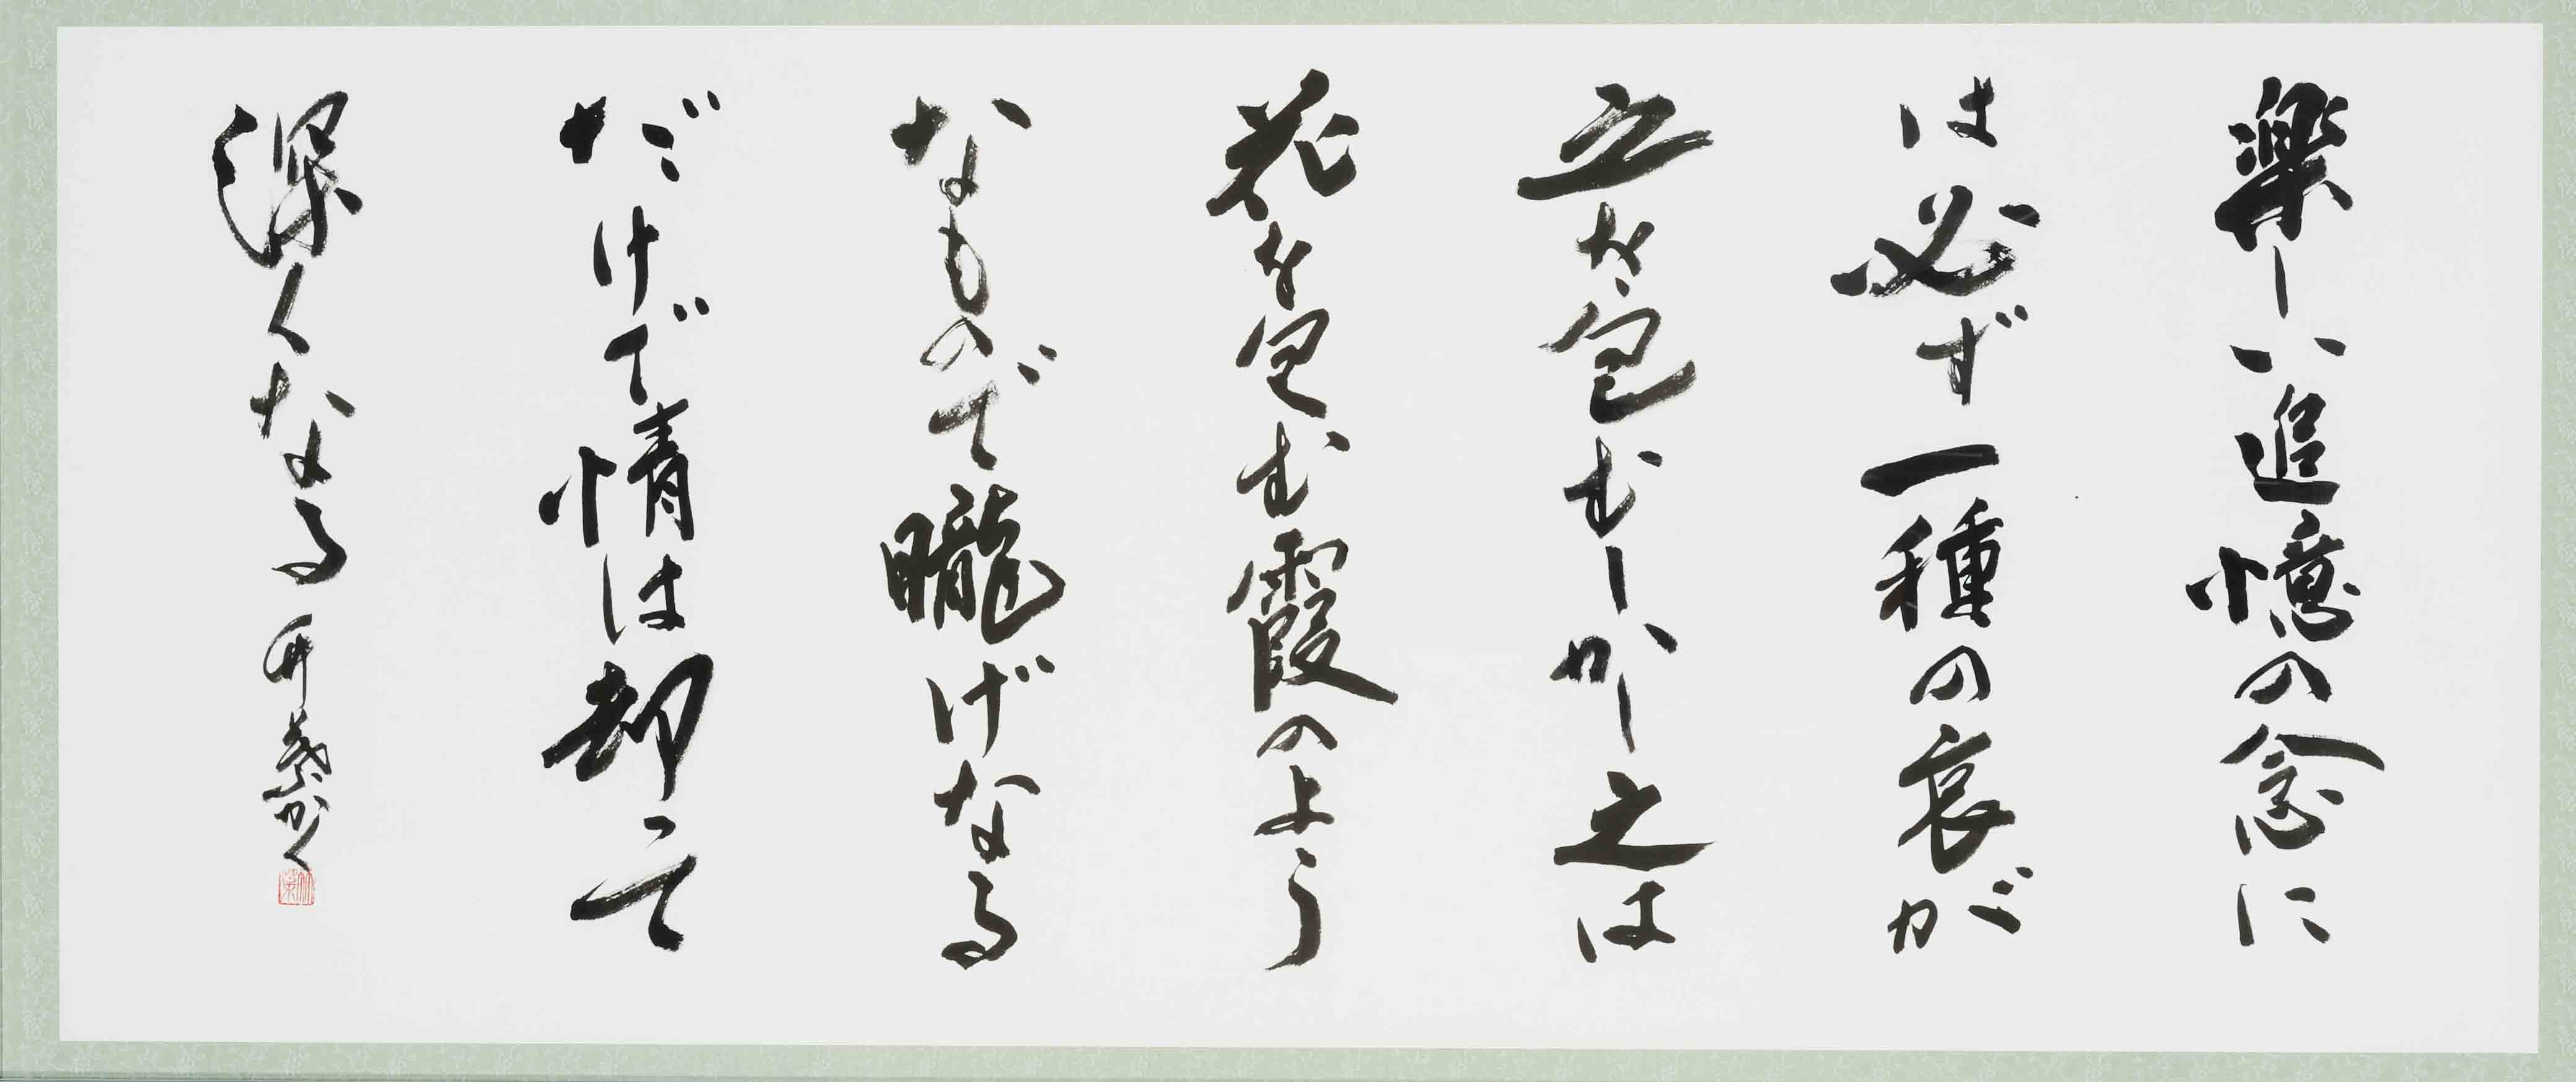 楽しい追憶の念に
は必ず一種の哀が
立を包むしかし之は
花を包む霞のよう
なもので朧げなる
だけで情は却って
深くなる 竹葉かく